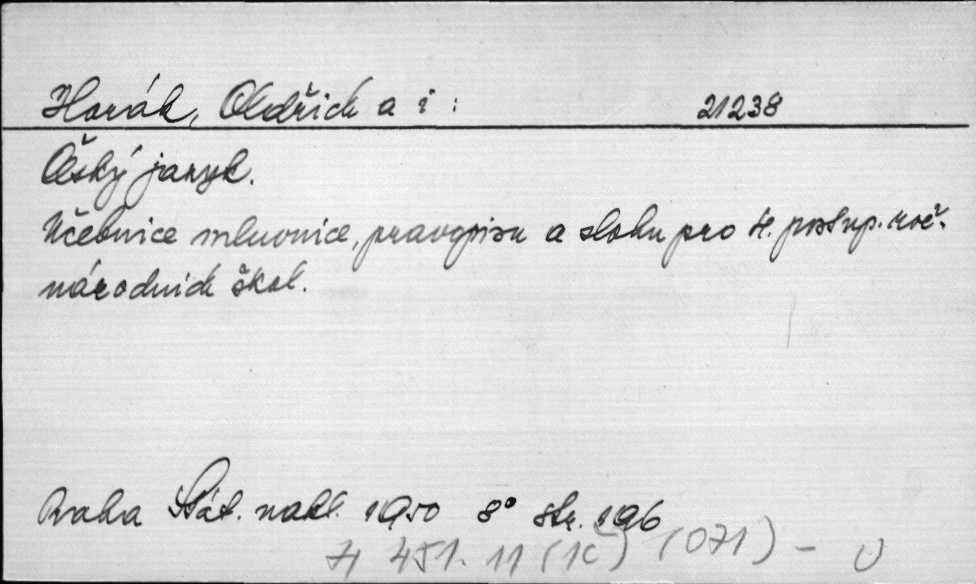 Horák, Oldřich a i : 21238
Český jazyk.
Učebnice mluvnice, pravopisu a slohu pro postup. roč.
národních škol.
Praha Stát. nakl. 1950 8° str. 196
451. 11 (1c) (071) -